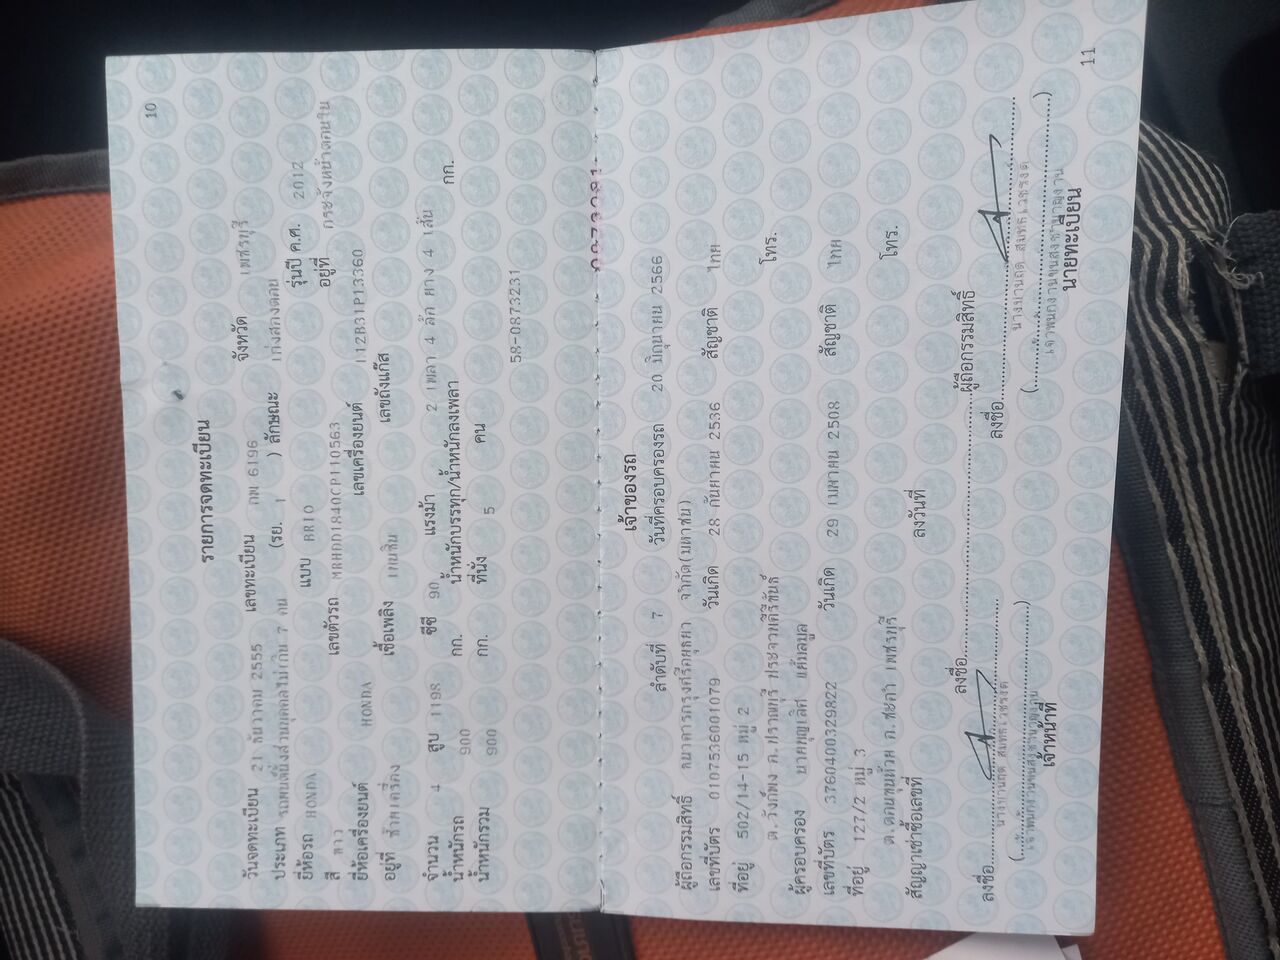 10
รายการจดทะเบียน
วันจดทะเบียน 21 ธันวาคม 2555 เลขทะเบียน กม 6196 จังหวัด เพชรบุรี
ประเภท รถยนต์นั่งส่วนบุคคลไม่เกิน 7 คน (รย. 1 ) ลักษณะ เก๋งสองตอน
ยี่ห้อรถ HONDA แบบ BRIO รุ่นปี ค.ศ. 2012
สี ขาว เลขตัวรถ MRHDD1840CP110563 อยู่ที่
ยี่ห้อเครื่องยนต์ HONDA เลขเครื่องยนต์ L12B31P13360
อยู่ที่ ซ้ายเครื่อง เชื้อเพลิง เบนซิน เลขถังแก๊ส
จำนวน 4 สูบ 1198 ซีซี 90 แรงม้า 2 เพลา 4 ล้อ ยาง 4 เส้น
น้ำหนักรถ 900 กก. น้ำหนักบรรทุก/น้ำหนักลงเพลา กก.
น้ำหนักรวม 900 กก. ที่นั่ง 5 คน
58-0873231
เจ้าของรถ
ลำดับที่ 7 วันที่ครอบครองรถ 20 มิถุนายน 2566
ผู้ถือกรรมสิทธิ์ ธนาคารกรุงศรีอยุธยา จำกัด(มหาชน)
เลขที่บัตร 0107536001079 วันเกิด 28 กันยายน 2536 สัญชาติ ไทย
ที่อยู่ 502/14-15 หมู่ 2
ต.วังก์พง อ.ปราณบุรี ประจวบคีรีขันธ์ โทร.
ผู้ครอบครอง นายบุญเลิศ แย้มสบูล
เลขที่บัตร 3760400329822 วันเกิด 29 เมษายน 2508 สัญชาติ ไทย
ที่อยู่ 127/2 หมู่ 3
ต.ดอนขุนห้วย อ.ชะอำ เพชรบุรี โทร.
สัญญาเช่าซื้อเลขที่ ลงวันที่
ลงชื่อ ผู้ถือกรรมสิทธิ์
ลงชื่อ ลงชื่อ
เจ้าหน้าที่ นายทะเบียน
11